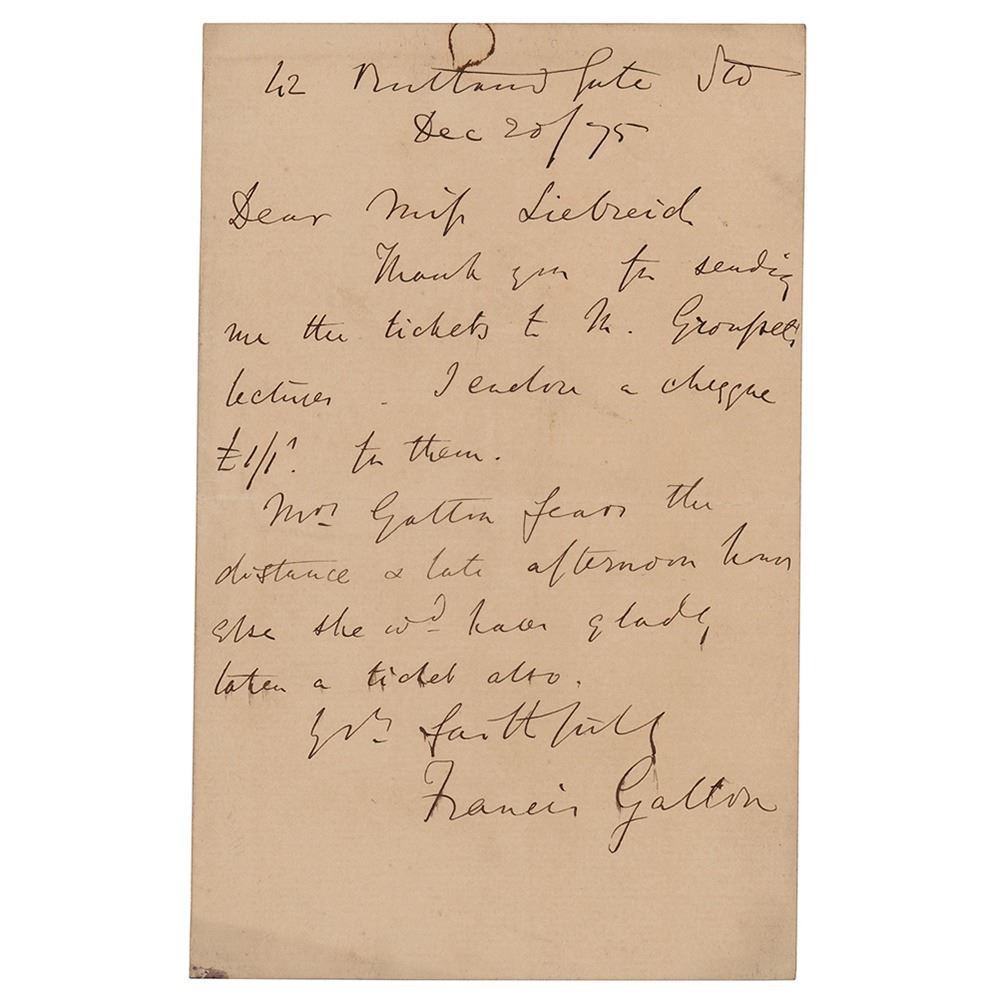 42 Rutland Gate SW
Dec 20/75
Dear Miss Liebreich
Thank you for sending
me the tickets to M. Grousset's
lectures. I enclose a cheque
£1/1s. for them.
Mrs Galton fears the
distance & late afternoon hours
else she wd have gladly
taken a ticket also.
Yrs faithfully
Francis Galton